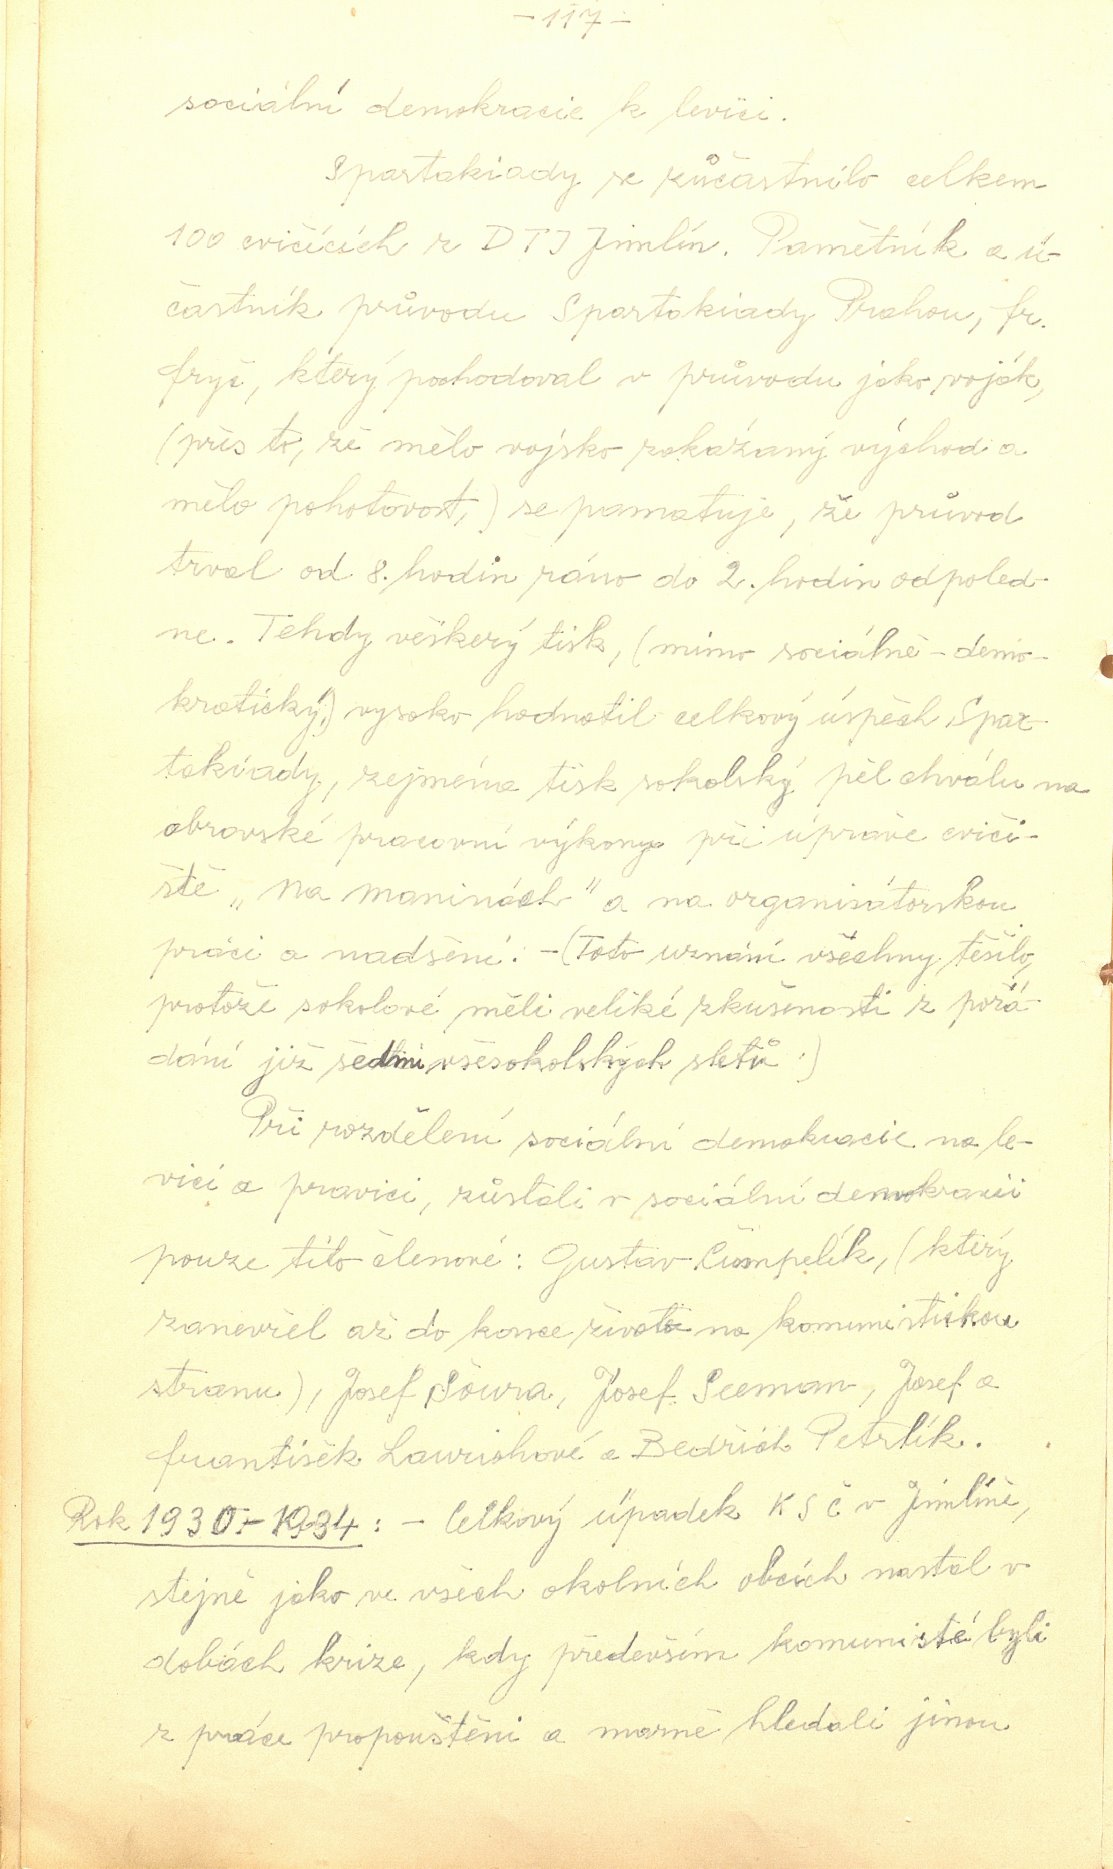 - 117 -
sociální demokracie k levici.
Spartakiady se zůčastnilo celkem
100 cvičících z DTJ Jimlín. Pamětník a ú-
častník průvodu Spartakiady Prahou, fr.
fryč, který pochodoval v průvodu jako voják,
(přes to, že mělo vojsko zakázaný východ a
mělo pohotovost,) se pamatuje, že průvod
trval od 8. hodin ráno do 2. hodin odpoled-
ne. Tehdy veškerý tisk, (mimo sociálně - demo-
kratický) vysoko hodnotil celkový úspěch Spar-
takiady, zejména tisk sokolský pěl chválu na
obrovské pracovní výkony při úpravě cviči-
ště „Na Maninách" a na organisátorskou
práci a nadšení. - (Toto uznání všechny těšilo,
protože sokolové měli veliké zkušenosti z pořá-
dání již sedmi všesokolských sletů.)
Při rozdělení sociální demokracie na le-
vici a pravici, zůstali v sociální demokracii
pouze tito členové: Gustav Čumpelík, (který
zanevřel až do konce života na komunistickou
stranu), Josef Soura, Josef Seeman, Josef a
františek Laurichové a Bedřich Petrlík.
Rok 1930 - 1934: - Celkový úpadek KSČ v Jimlíně,
stejně jako ve všech okolních obcích nastal v
dobách krize, kdy především komunisté byli
z práce propouštěni a marně hledali jinou